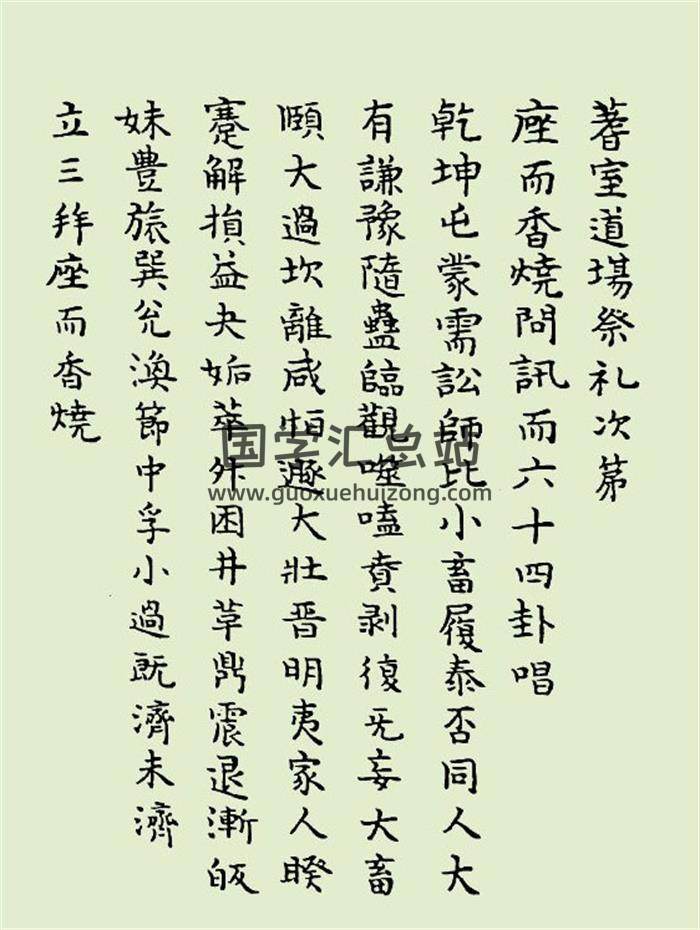 蓍室道塲祭礼次苐
座而香燒問訊而六十四卦唱
乾坤屯蒙需訟師比小畜履泰否同人大
有謙豫隨蠱臨觀噬嗑賁剥復无妄大畜
頤大過坎離咸恒遯大壯晋明夷家人睽
蹇解損益夬姤萃升困井革鼎震退漸皈
妹豊旅巽兌渙節中孚小過既濟未濟
立三拜座而香燒
国学汇总站
www.guoxuehuizong.com